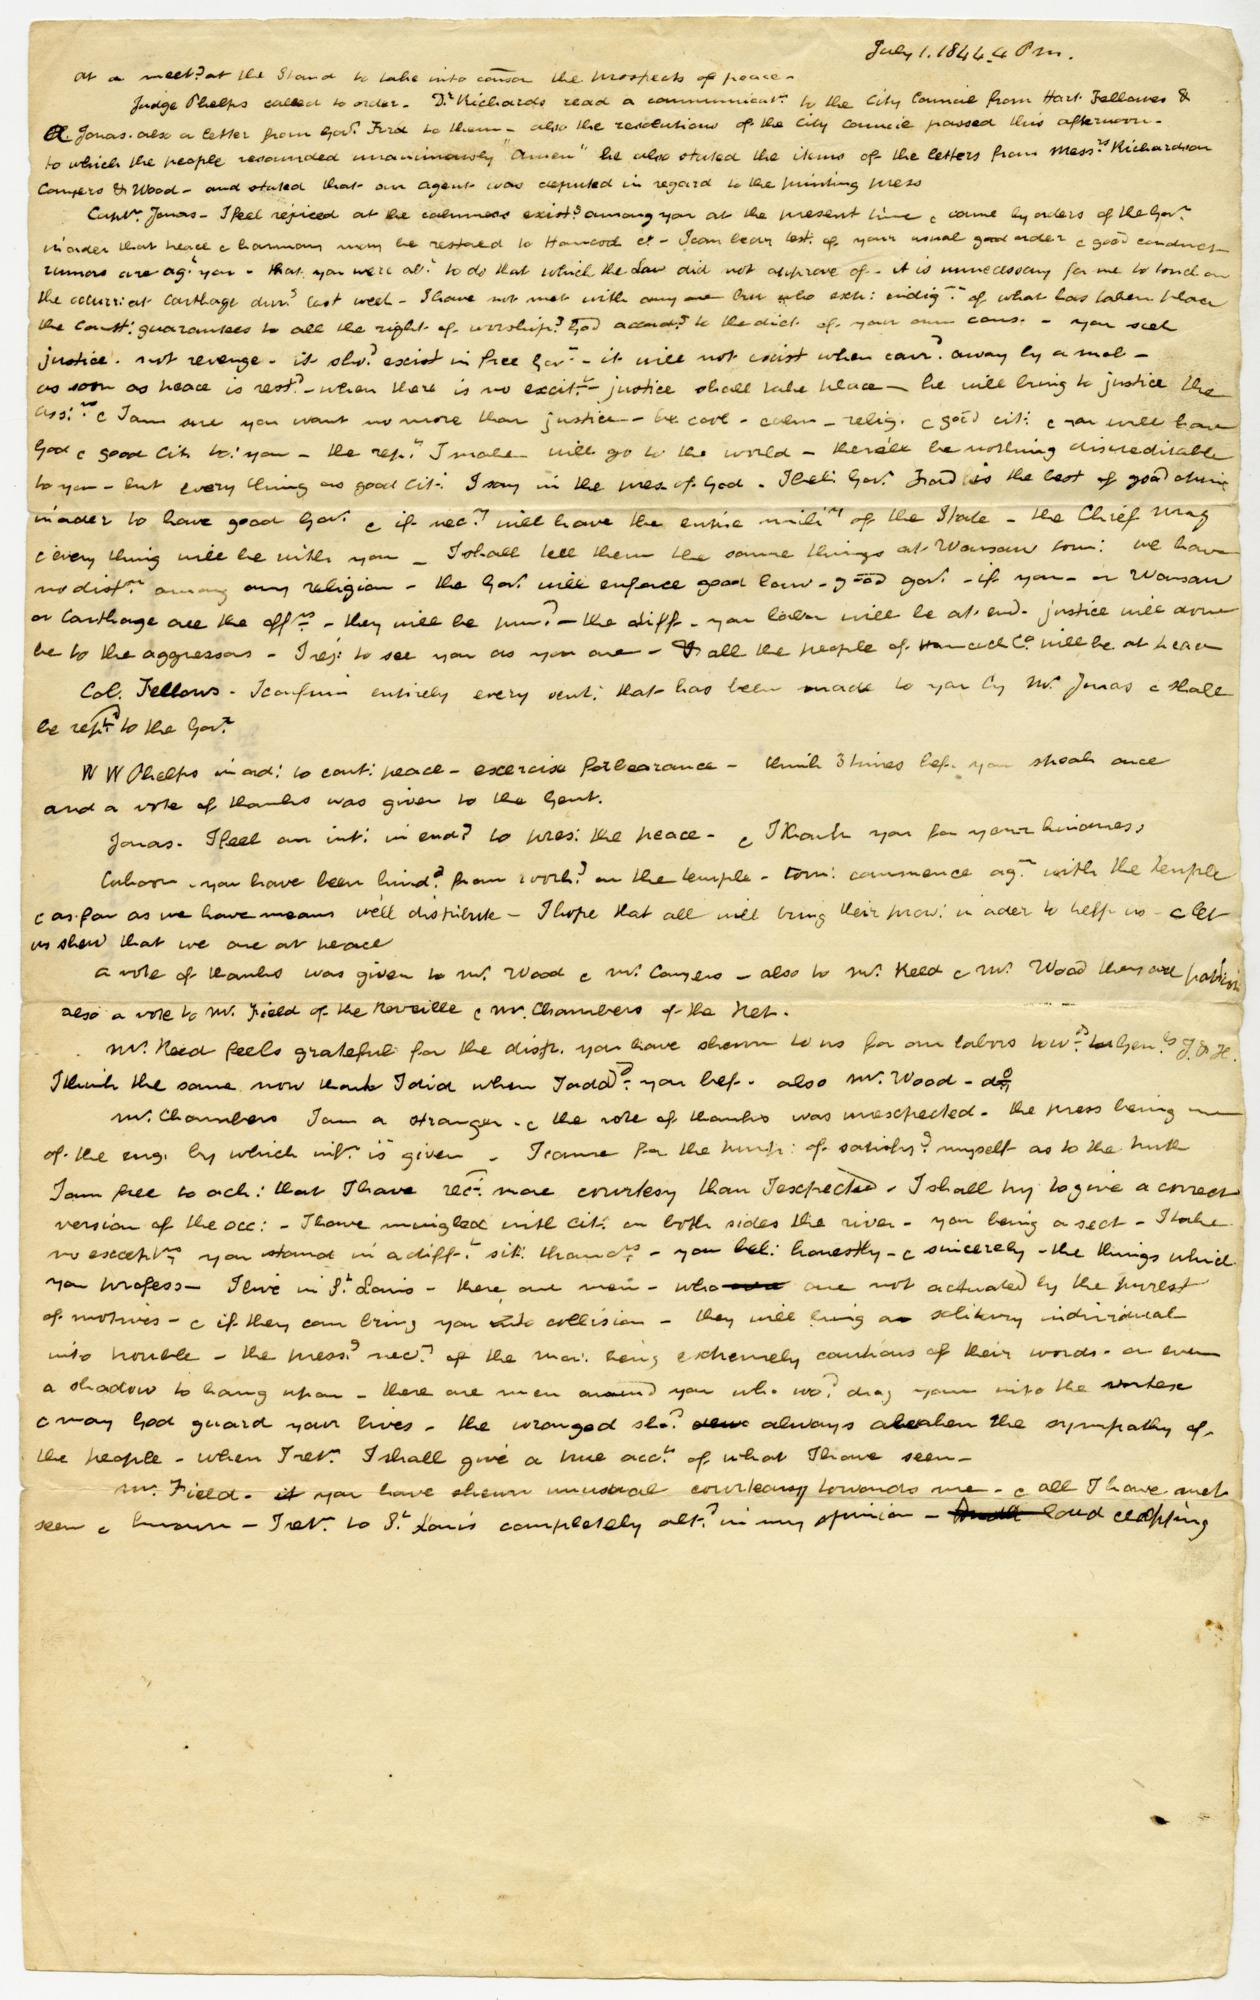 July 1. 1844. 4 Pm.
at a meetg at the Stand to take into conson the prospects of peace -
Judge Phelps called to order - Dr. Richards read a communicatn to the City Council from Hart Fellows &
A Jonas. also a letter from Govr Ford to them - also the resolutions of the City Council passed this afternoon -
to which the people resounded unanimously "Amen" he also stated the items of the letters from Messrs Richardson
Conyers & Wood - and stated that an agent was deputed in regard to the printing press
Captn Jonas - I feel rejoiced at the calmness existg among you at the present time & came by orders of the Govr
in order that peace & harmony may be restored to Hancock Co - I can bear test: of your usual good order & good conduct
rumors are agt you - that you were abt to do that which the Law did not approve of - it is unnecessary for me to touch on
the occur: at Carthage durg last week - I have not met with any one but who exp: indign of what has taken place
the Const: guarantees to all the right of worshipg God accordg to the dict of your own cons: - you seek
justice. not revenge - it shod exist in free Govt - it will not exist when card away by a mob -
as soon as peace is restd - when there is no excitt - justice shall take place - he will bring to justice the
ass:ns & I am sure you want no more than justice - be cool - calm - relig. & good cit: & you will have
God & good Cits to: you - the rept I make will go to the world - there'll be nothing discreditable
to you - but every thing as good Cit: I say in the pres of God - I beli Govr Ford has the best of good
in order to have good Govt & if necy will have the entire mility of the State - the Chief Mag
& every thing will be with you - I shall tell them the same things at Warsaw tom: we have
no distn among any religion - the Govr will enforce good law - good govt - if you - or Warsaw
or Carthage are the offrs - they will be pund - the diff - you labor will be at end. justice will done
be to the aggressors - I rej: to see you as you are - & all the people of Hancock Co will be at peace
Col. Fellows - I confirm entirely every sent: that has been made to you by Mr. Jonas & shall
be reptd to the Govr
W W Phelps in ord: to cont: peace - exercise forbearance - think 3 times bef. you speak once
and a vote of thanks was given to the Gent.
Jonas - I feel an int: in endg to pres: the peace - & I thank you for your kindness
Cahoon - you have been hindd from workg on the temple - tom: commence agn with the temple
& as far as we have means we'll distribute - I hope that all will bring their prov: in order to help us - & let
us shew that we are at peace
a vote of thanks was given to Mr. Wood & Mr. Conyers - also to Mr. Reed & Mr. Wood
also a vote to Mr. Field of the Reveille & Mr. Chambers of the Rep.
Mr. Reed feels grateful for the disp. you have shewn to us for our labors towds Genls J. & H.
I think the same now that I did when I addd you bef. also Mr. Wood - do
Mr. Chambers I am a stranger - & the vote of thanks was unexpected - the press being one
of the eng: by which infn is given - I came for the purp: of satisfyg myself as to the truth
I am free to ack: that I have recd more courtesy than I expected - I shall try to give a correct
version of the occ: - I have mingled with cit: on both sides the river - you being a sect - I take
no exceptns you stand in a difft sit: than ors - you beli: honestly - & sincerely - the things which
you profess - I live in St. Louis - there are men - who are not actuated by the purest
of motives - & if they can bring you into collision - they will bring a solitary individual
into trouble - the pressg necy of the Mor: being extremely cautious of their words - or even
a shadow to hang upon - there are men around you who wod drag you into the vortex
& may God guard your lives - the wronged shod always awaken the sympathy of
the people - when I retn I shall give a true acct of what I have seen -
Mr. Field - you have shewn unusual courteousy towards me - & all I have met
seen & known - I retn to St. Louis completely altd in my opinion - loud clapping